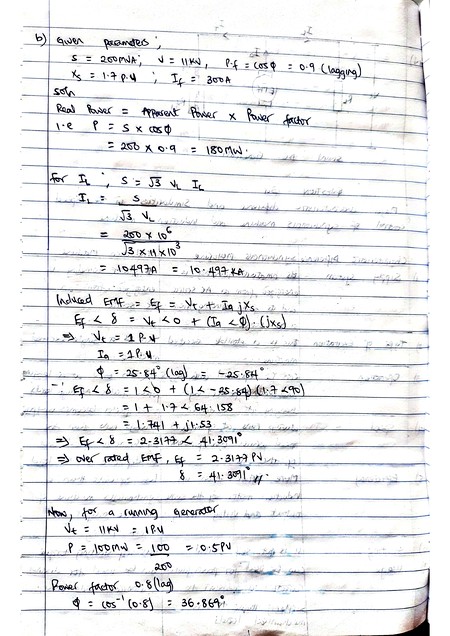 b) Given parameters;
S = 200MVA; V = 11KV, P.f = cosϕ = 0.9 (lagging)
Xs = 1.7 P.U ; If = 300A
soln
Real Power = Apparent Power x Power factor
i.e P = S x cosϕ
= 200 x 0.9 = 180MW.
for IL ; S = √3 VL IL
IL = S
√3 VL
= 200 x 10⁶
√3 x 11 x 10³
= 10497A = 10.497KA
Induced EMF = Ef = Vt + Ia jXs
Ef < δ = Vt < 0 + (Ia < ϕ) . (jXs)
⇒ Vt = 1 P.U
Ia = 1 P.U
ϕ = 25.84° (lag) = -25.84°
∵ Ef < δ = 1 < 0 + (1 < -25.84) (1.7 < 90)
= 1 + 1.7 < 64.158
= 1.741 + j1.53
⇒ Ef < δ = 2.3177 < 41.3091°
⇒ over rated EMF, Ef = 2.3177 PU
δ = 41.3091° //
Now, for a running Generator
Vt = 11KV = 1P.U
P = 100MW = 100 = 0.5PU
200
Power factor 0.8 (lag)
ϕ = cos⁻¹ (0.8) = 36.869°